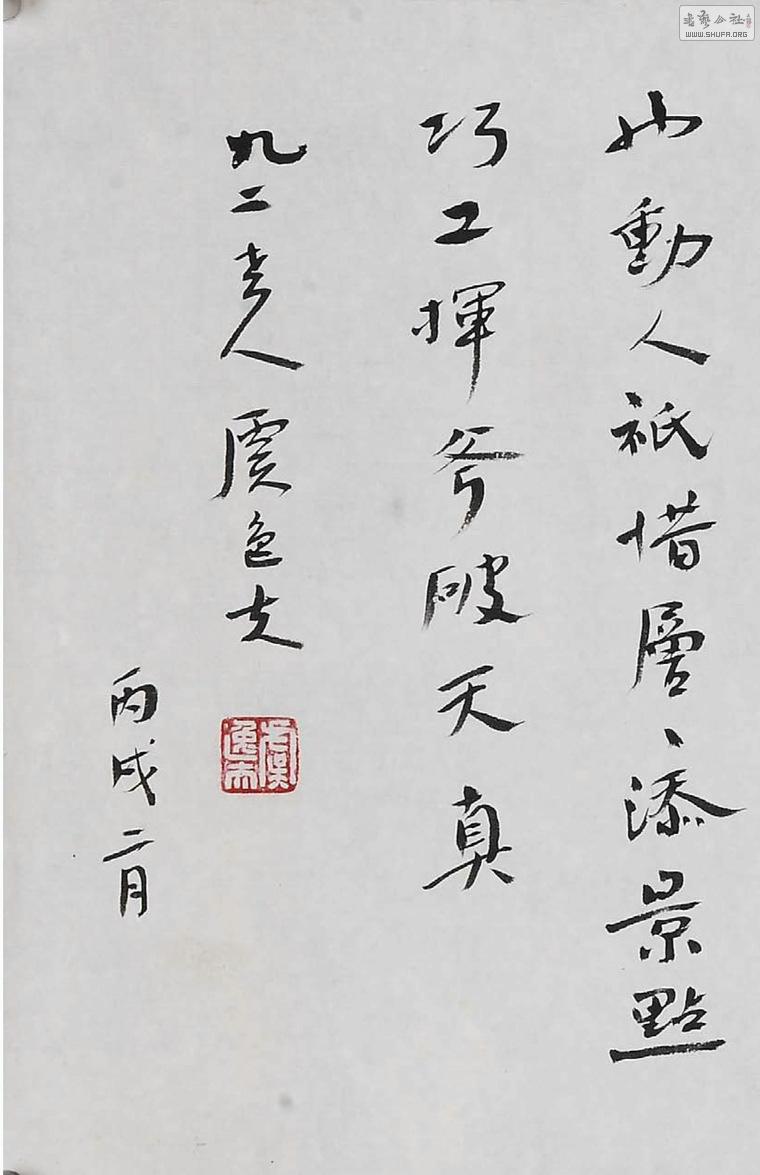 書藝公社
WWW.SHUFA.ORG
動人祇惜層、添景點
巧工揮斧破天真
九二老人虞逸夫
虞逸夫
丙戌二月